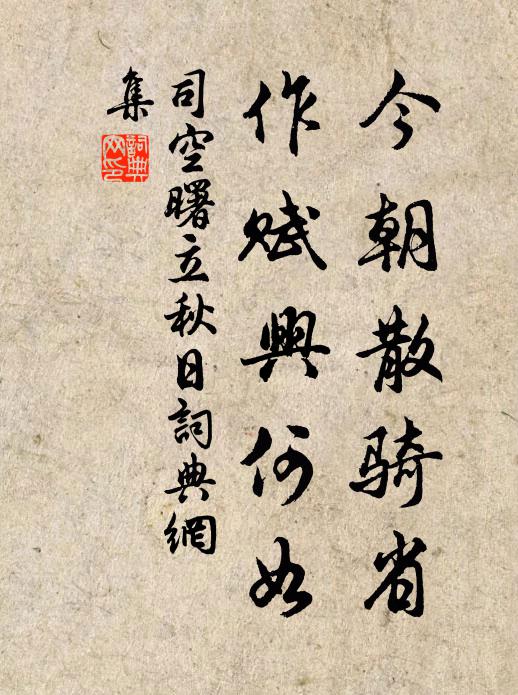 今朝散骑省
作赋興何如
司空曙立秋日詞典網
集
詞典
网印